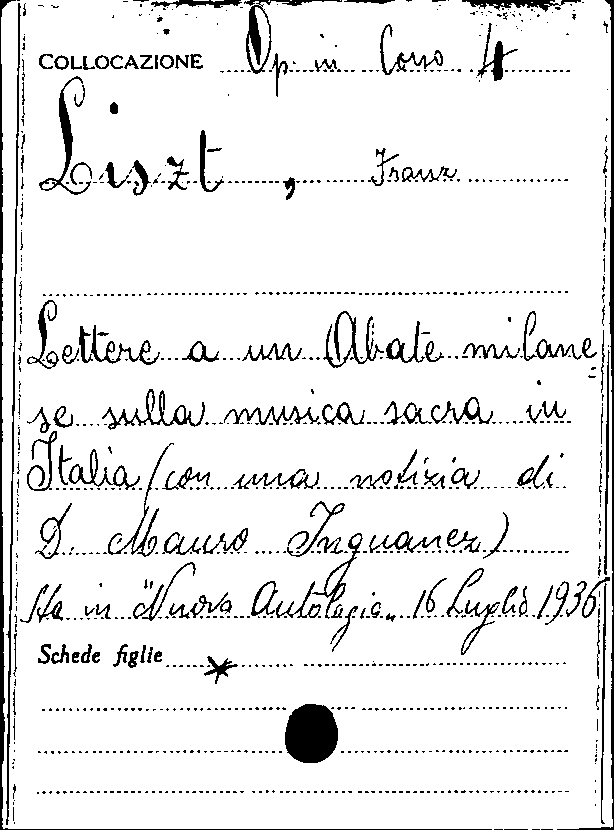 COLLOCAZIONE Op in Corso 4
Liszt, Franz
Lettere a un Abate milane=
se sulla musica sacra in
Italia (con una notizia di
D. Mauro Inguanez)
Sta in "Nuova Antologia" 16 Luglio 1936
Schede figlie *